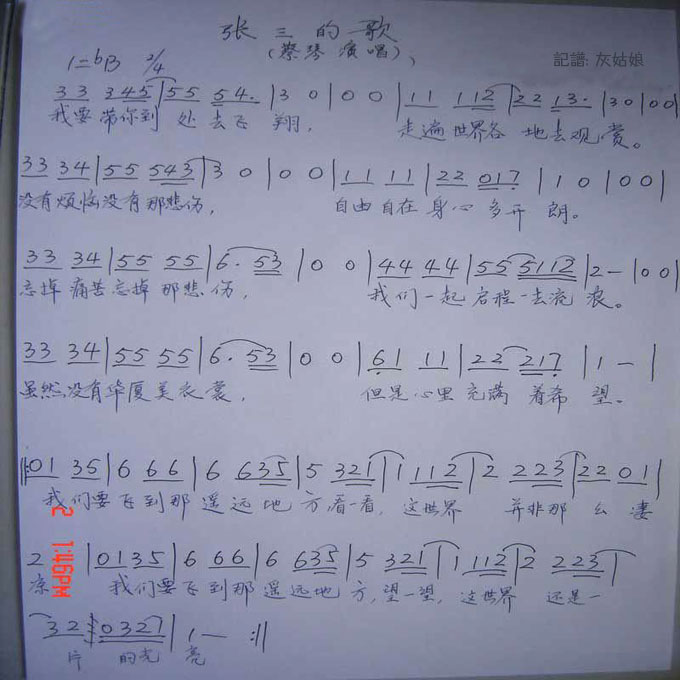 张三的歌
(蔡琴演唱)
記譜: 灰姑娘
1=bB 2/4
33 345|55 54.|30|00|11 112|22 13.|30|00|
我要带你到处去飞翔，走遍世界各地去观赏。
33 34|55 543|30|00|11 11|22 017|10|00|
没有烦恼没有那悲伤，自由自在身心多开朗。
33 34|55 55|6. 53|00|44 44|55 5112|2-|00|
忘掉痛苦忘掉那悲伤，我们一起启程去流浪。
33 34|55 55|6. 53|00|61 11|22 217|1-|
虽然没有华厦美衣裳，但是心里充满着希望。
‖:01 35|6 66|6 635|5 321|1 112|2 223|22 01|
我们要飞到那遥远地方，看一看，这世界并非那么凄
2 |0135|6 66|6 635|5 321|1 112|2 223|
凉 我们要飞到那遥远地方，望一望，这世界还是一
32 0327|1-:‖
片的光亮
2 1:46PM